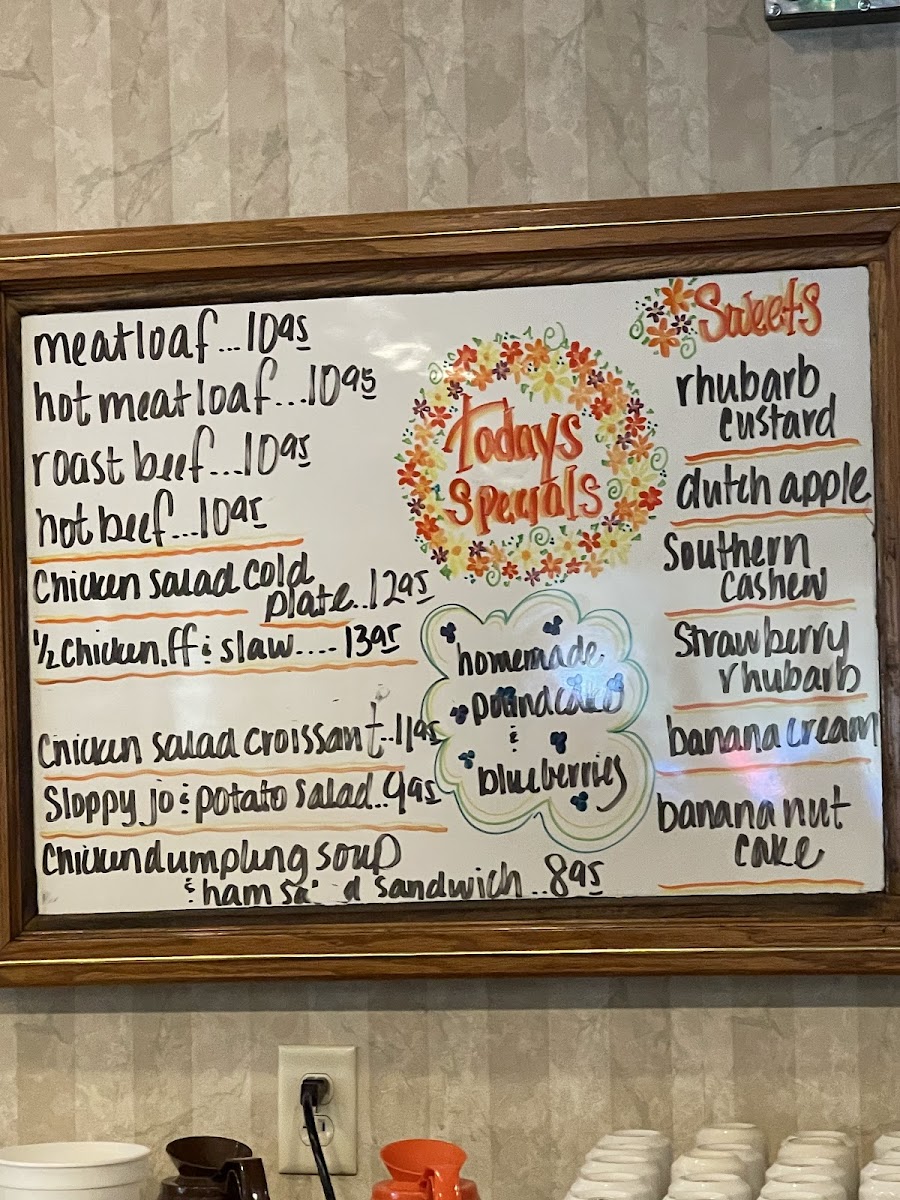 meatloaf...1095
hot meatloaf...1095
roast beef...1095
hot beef...1095
Chicken salad cold
plate..1295
1/2 Chicken, ff & slaw....1395
Chicken salad croissant..1195
Sloppy jo & potato salad..995
Chicken dumpling soup
& ham sandwich..895
Todays
Specials
homemade
poundcake
&
blueberries
Sweets
rhubarb
custard
dutch apple
Southern
cashew
Strawberry
rhubarb
banana cream
banana nut
cake